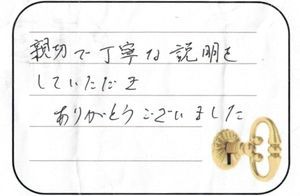 親切で丁寧な説明を
していただき
ありがとうございました